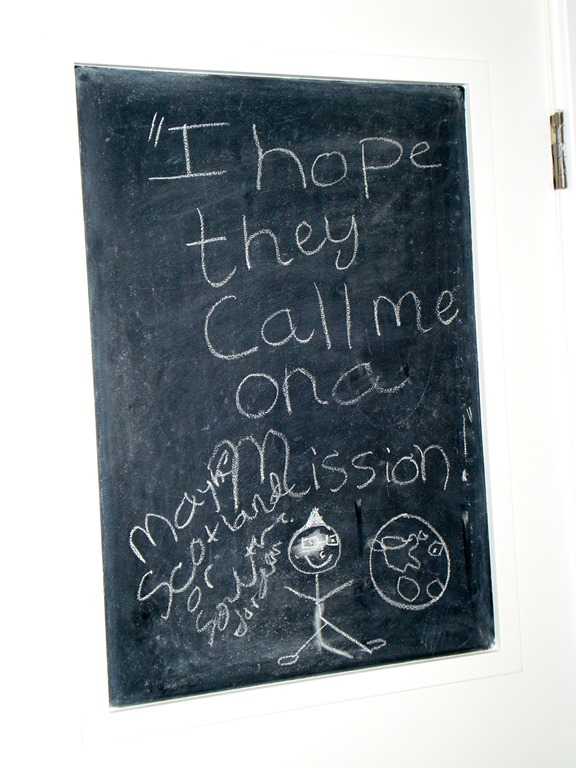 "I hope
they
Call me
on a
Mission!"
Scotland
or